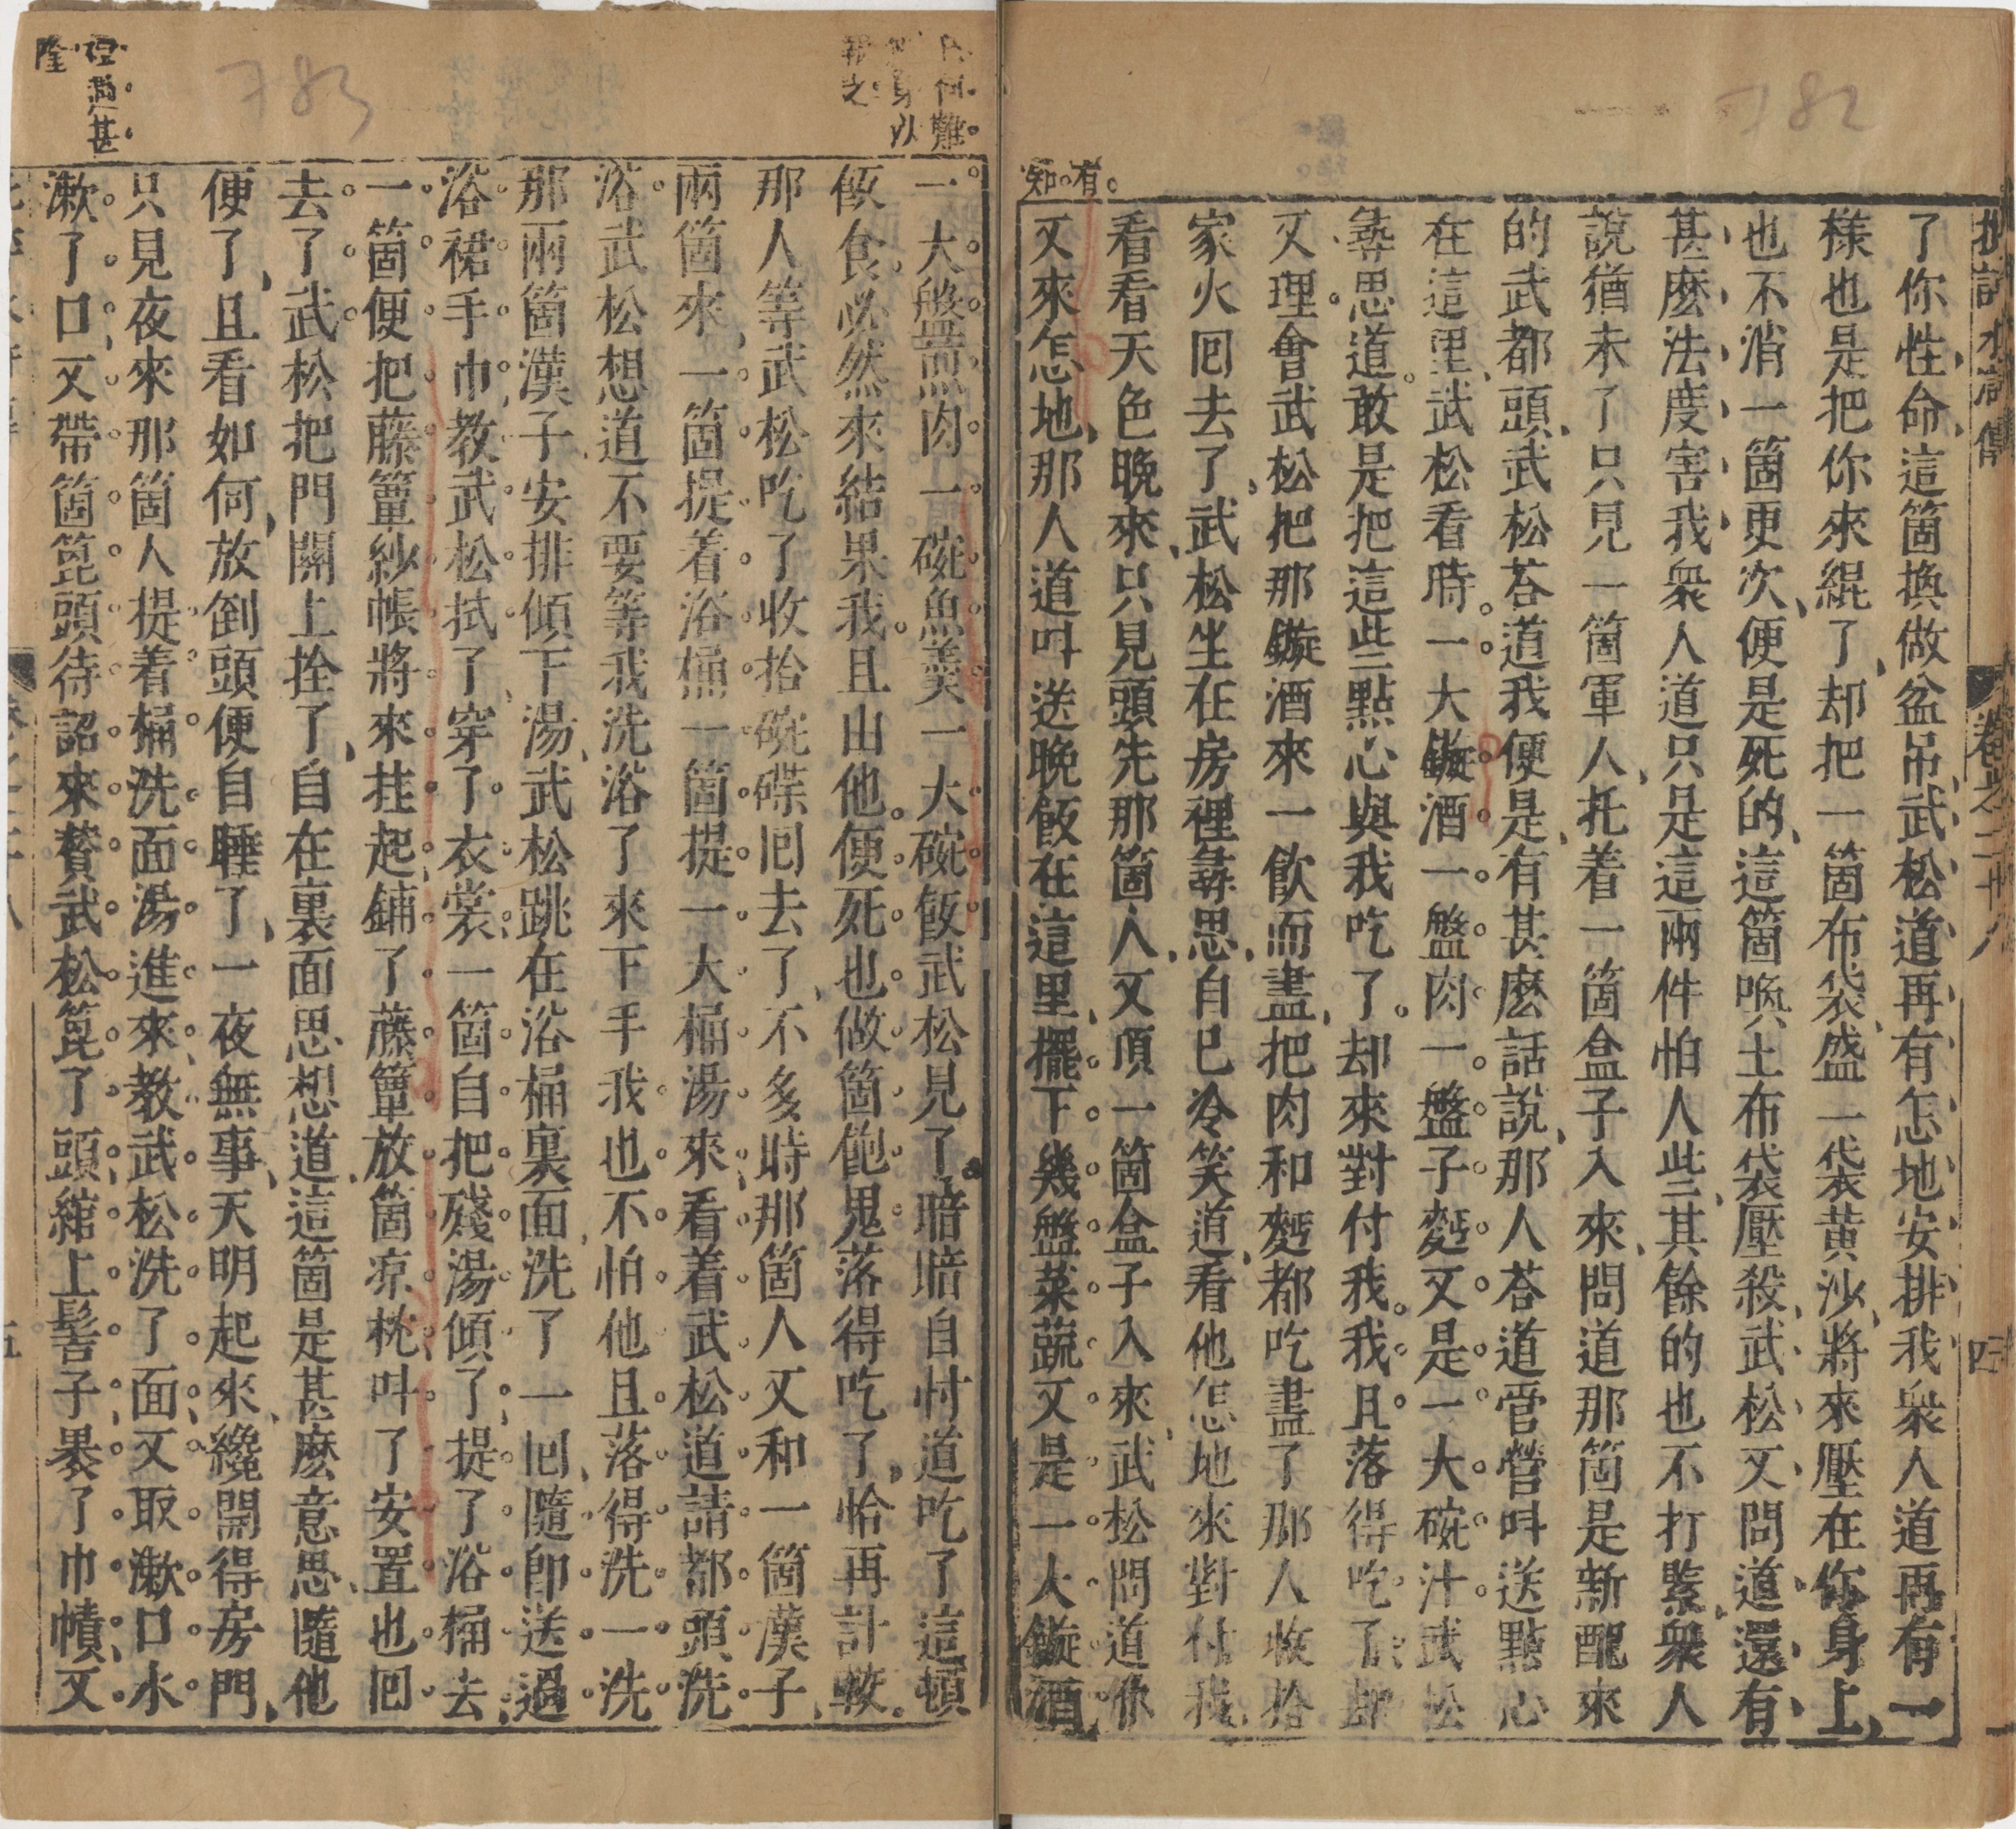 批評水滸傳
卷之二十八
四
了你性命這箇換做盆吊武松道再有怎地安排我衆人道再有一
樣也是把你來綑了却把一箇布袋盛一袋黄沙將來壓在你身上
也不消一箇更次便是死的這箇喚土布袋壓殺武松又問道還有
甚麽法度害我衆人道只是這兩件怕人些其餘的也不打緊衆人
說猶未了只見一箇軍人托着一箇盒子入來問道那箇是新配來
的武都頭武松荅道我便是有甚麽話說那人荅道管營呌送點心
在這里武松看時一大鏇酒一盤肉一盤子麪又是一大碗汁武松
尋思道敢是把這些點心與我吃了却來對付我我且落得吃了却
又理會武松把那鏇酒來一飲而盡把肉和麪都吃盡了那人收拾
家火囘去了武松坐在房裡尋思自已冷笑道看他怎地來對付我
看看天色晚來只見頭先那箇人又頂一箇盒子入來武松問道你
又來怎地那人道呌送晚飯在這里擺下幾盤菜蔬又是一大鏇酒
有
知
一大盤煎肉一碗魚羹一大碗飯武松見了暗暗自忖道吃了這頓
飯食必然來結果我且由他便死也做箇飽鬼落得吃了恰再計較
那人等武松吃了收拾碗碟囘去了不多時那箇人又和一箇漢子
兩箇來一箇提着浴桶一箇提一大桶湯來看着武松道請都頭洗
浴武松想道不要等我洗浴了來下手我也不怕他且落得洗一洗
那兩箇漢子安排傾下湯武松跳在浴桶裏面洗了一囘隨卽送過
浴裙手巾教武松拭了穿了衣裳一箇自把殘湯傾了提了浴桶去
一箇便把藤簟紗帳將來挂起鋪了藤簟放箇凉枕呌了安置也囘
去了武松把門關上拴了自在裏面思想道這箇是甚麽意思隨他
便了且看如何放倒頭便自睡了一夜無事天明起來纔開得房門
只見夜來那箇人提着桶洗面湯進來教武松洗了面又取漱口水
漱了口又帶箇篦頭待詔來替武松篦了頭綰上髻子裹了巾幘又
何難
身以
之
禮遇甚
隆
五
783
782